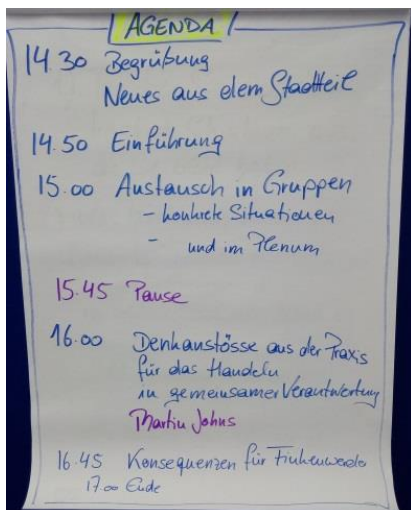 AGENDA
14.30 Begrüßung
Neues aus dem Stadtteil
14.50 Einführung
15.00 Austausch in Gruppen
- konkrete Situationen
- und im Plenum
15.45 Pause
16.00 Denkanstösse aus der Praxis
für das Handeln
in gemeinsamer Verantwortung
Martin Johns
16.45 Konsequenzen für Finkenwerder
17.00 Ende